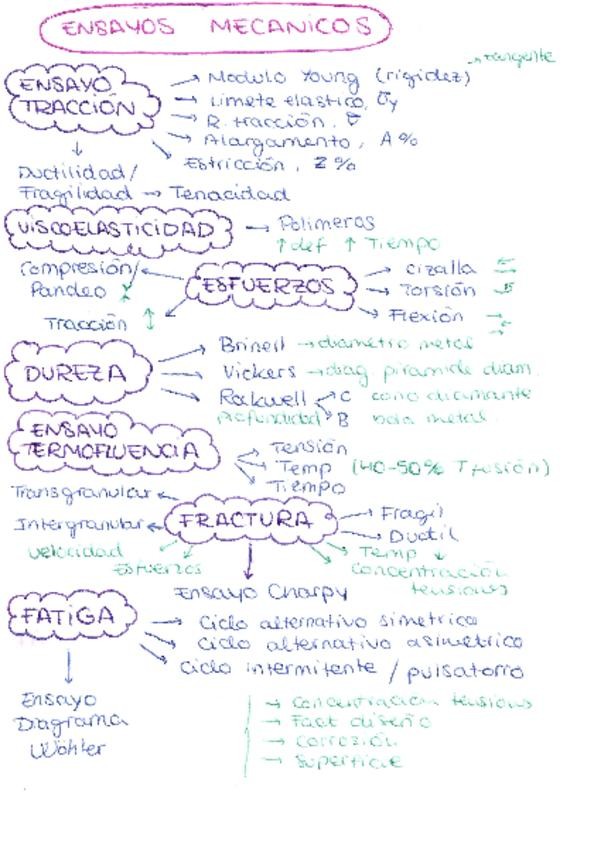 ENSAYOS MECANICOS
→ tangente
ENSAYO TRACCIÓN
→ Modulo Young (rigidez)
→ Limete elastico, σy
→ R. tracción, σ
→ Alargamento, A%
→ Estricción, Z%
Ductilidad/
Fragilidad → Tenacidad
VISCOELASTICIDAD → Polimeros
↑ def ↑ Tiempo
Compresión/
Pandeo
Tracción ↕
ESFUERZOS
→ Cizalla
→ Torsión
→ Flexión
DUREZA
→ Brinell → diametro metal
→ Vickers → diag. piramide diam.
→ Rockwell
C cono diamante
Profundidad B bola metal
ENSAYO
TERMOFLUENCIA
→ Tensión
→ Temp (40-50% T fusión)
→ Tiempo
Transgranular
Intergranular
FRACTURA
→ Fragil
→ Ductil
velocidad
Esfuerzos
→ Temp ↓
Concentración
tensions
Ensayo Charpy
FATIGA
→ Ciclo alternativo simetrico
→ Ciclo alternativo asimetrico
→ Ciclo intermitente / pulsatorro
Ensayo
Diagrama
Wöhler
→ Concentracion tensions
→ Fact diseño
→ Corrosión
→ Superficie